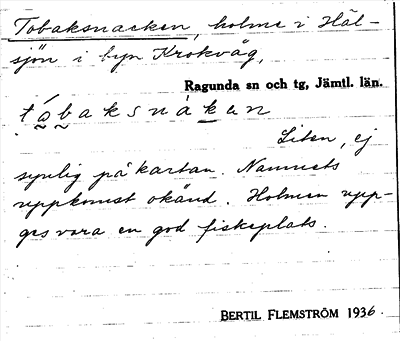 Tobaksnacken, holme i Häl-
sjön i byn Krokvåg,
Ragunda sn och tg, Jämtl. län.
tɷ́baksnàken
Liten, ej
synlig på kartan. Namnets
uppkomst okänd. Holmen upp-
ges vara en god fiskeplats.
BERTIL FLEMSTRÖM 1936.